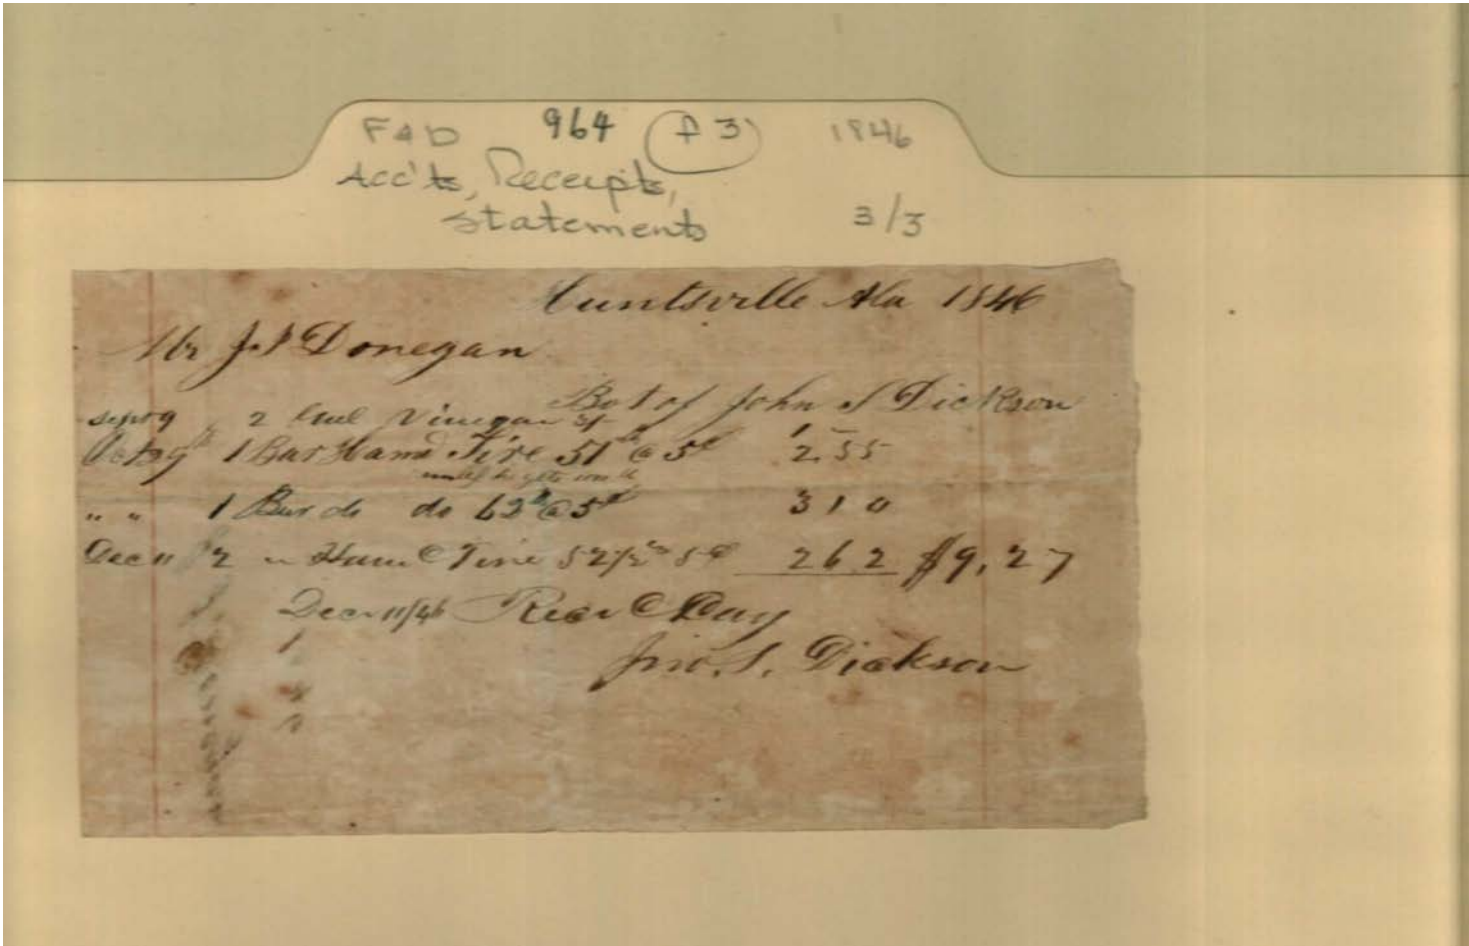 F&D 964 (f 3) 1846
Acc'ts, Receipts,
Statements 3/3
Huntsville Ala 1846
Mr J. Donegan
Bot of John S Dickson
Sept 9 2 Vinegar 1
Oct 29 1 Bar Hamd Tire 51 lb @ 5¢ 2 55
" " 1 Bar do do 62 lb @ 5¢ 3 1 0
Dec 11 2 " Tire 52½ lb 5¢ 2 6 2 $9,27
Decr 11/46 Pay
Jno. S. Dickson